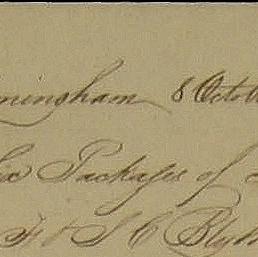 mingham 8 Octob
Six Packages of
F & S C Blyth